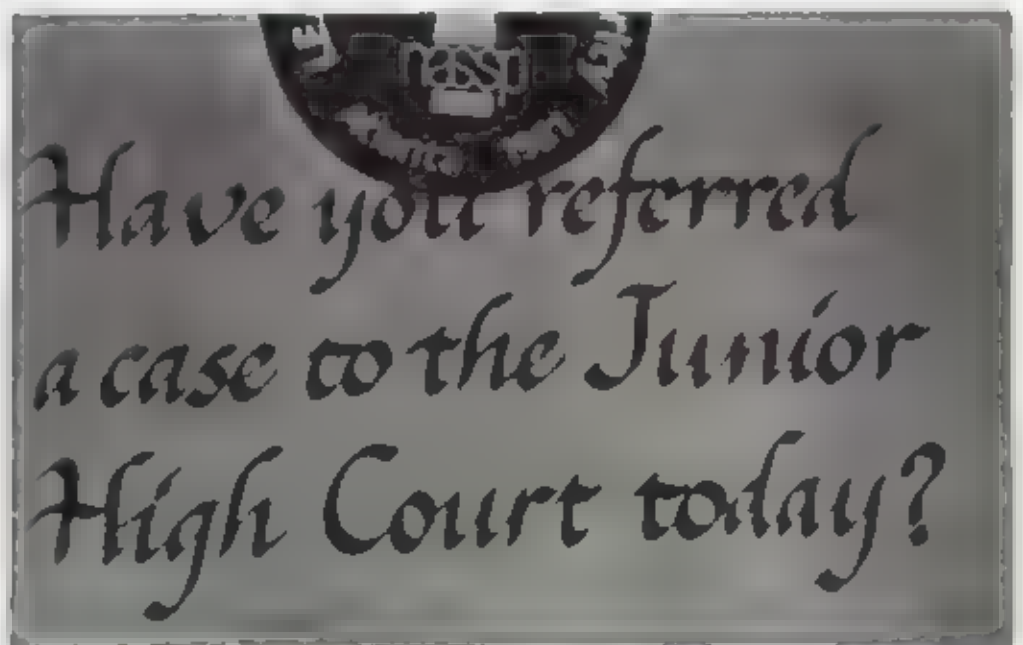 Have you referred
a case to the Junior
High Court today?